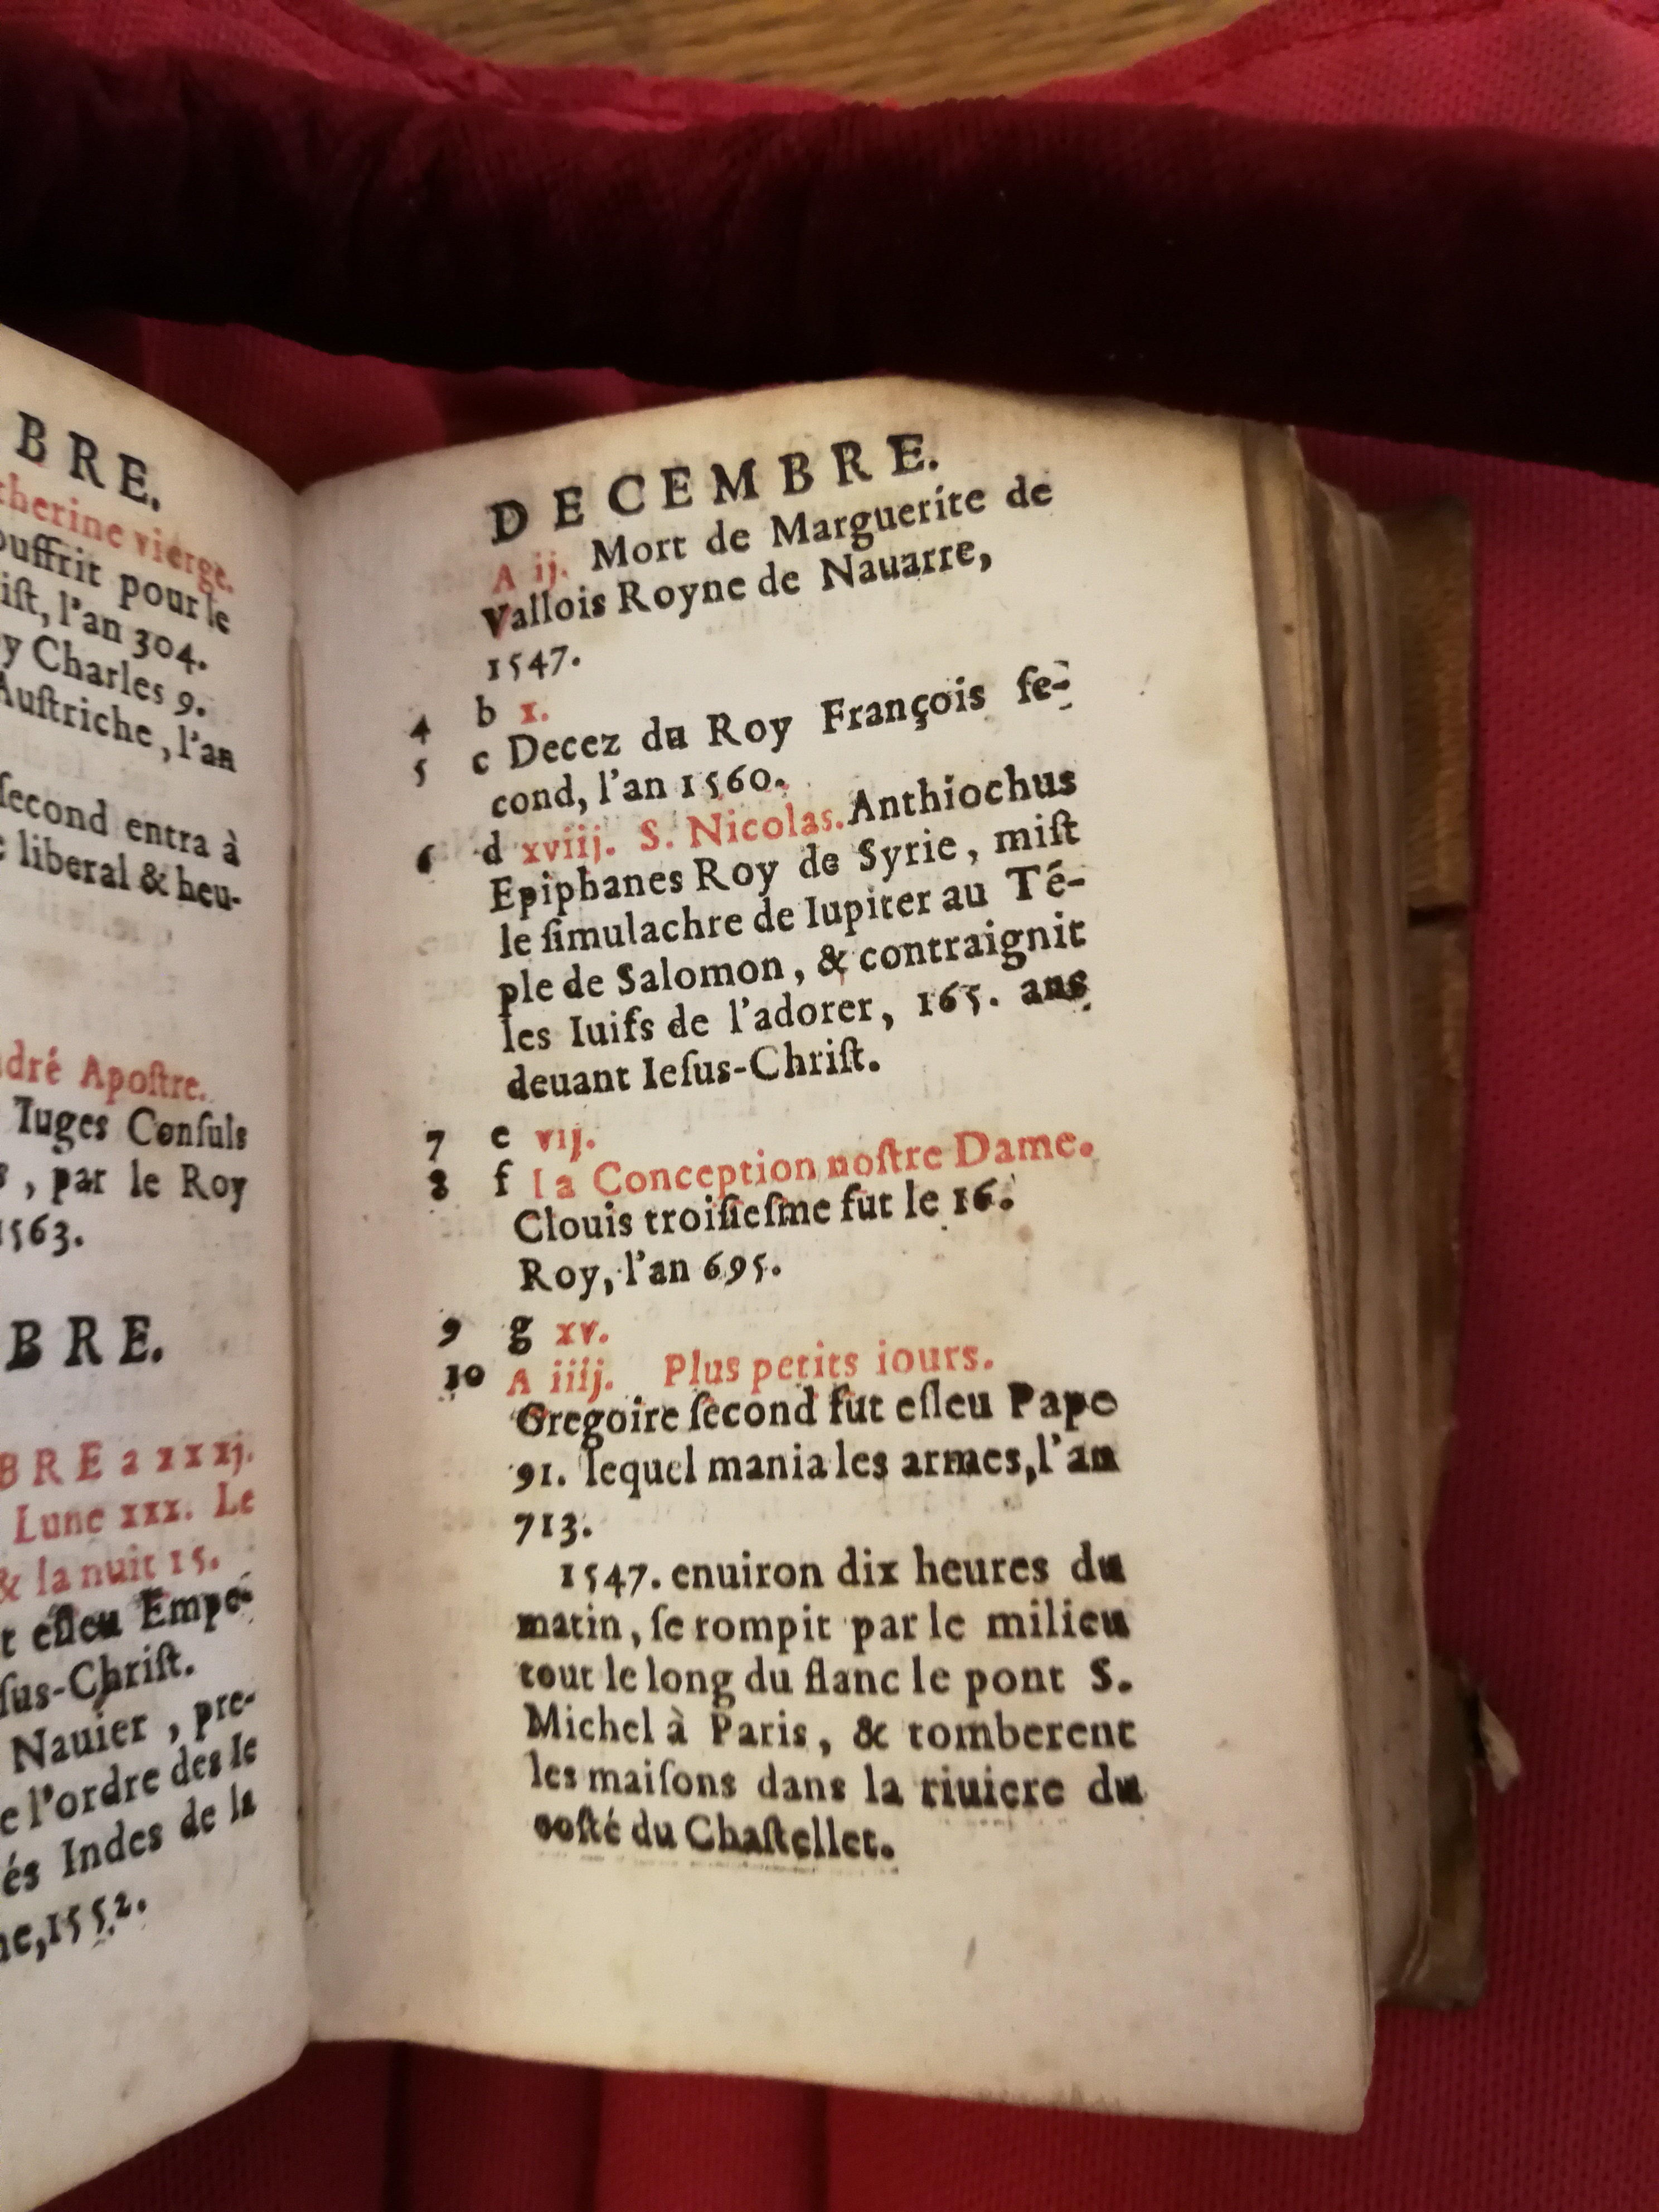 BRE.
therine vierge.
ouffrit pour le
iſt, l'an 304.
y Charles 9.
Auſtriche, l'an
ſecond entra à
liberal & heu-
dré Apoſtre.
Iuges Conſuls
, par le Roy
1563.
BRE.
BRE a xxxj.
Lune xxx. Le
& la nuit 15.
t eſleu Empe-
ſus-Chriſt.
Nauier, pre-
e l'ordre des Ie
és Indes de la
ne, 1552.
DECEMBRE.
A ij. Mort de Marguerite de
Vallois Royne de Nauarre,
1547.
4 b x.
5 c Decez du Roy François ſe-
cond, l'an 1560.
6 d xviij. S. Nicolas. Anthiochus
Epiphanes Roy de Syrie, miſt
le ſimulachre de Iupiter au Té-
ple de Salomon, & contraignit
les Iuifs de l'adorer, 165. ans
deuant Ieſus-Chriſt.
7 e vij.
8 f la Conception noſtre Dame.
Clouis troiſieſme fut le 16.
Roy, l'an 695.
9 g xv.
10 A iiij. Plus petits iours.
Gregoire ſecond fut eſleu Pape
91. lequel mania les armes, l'an
713.
1547. enuiron dix heures du
matin, ſe rompit par le milieu
tout le long du flanc le pont S.
Michel à Paris, & tomberent
les maiſons dans la riuiere du
coſté du Chaſtellet.